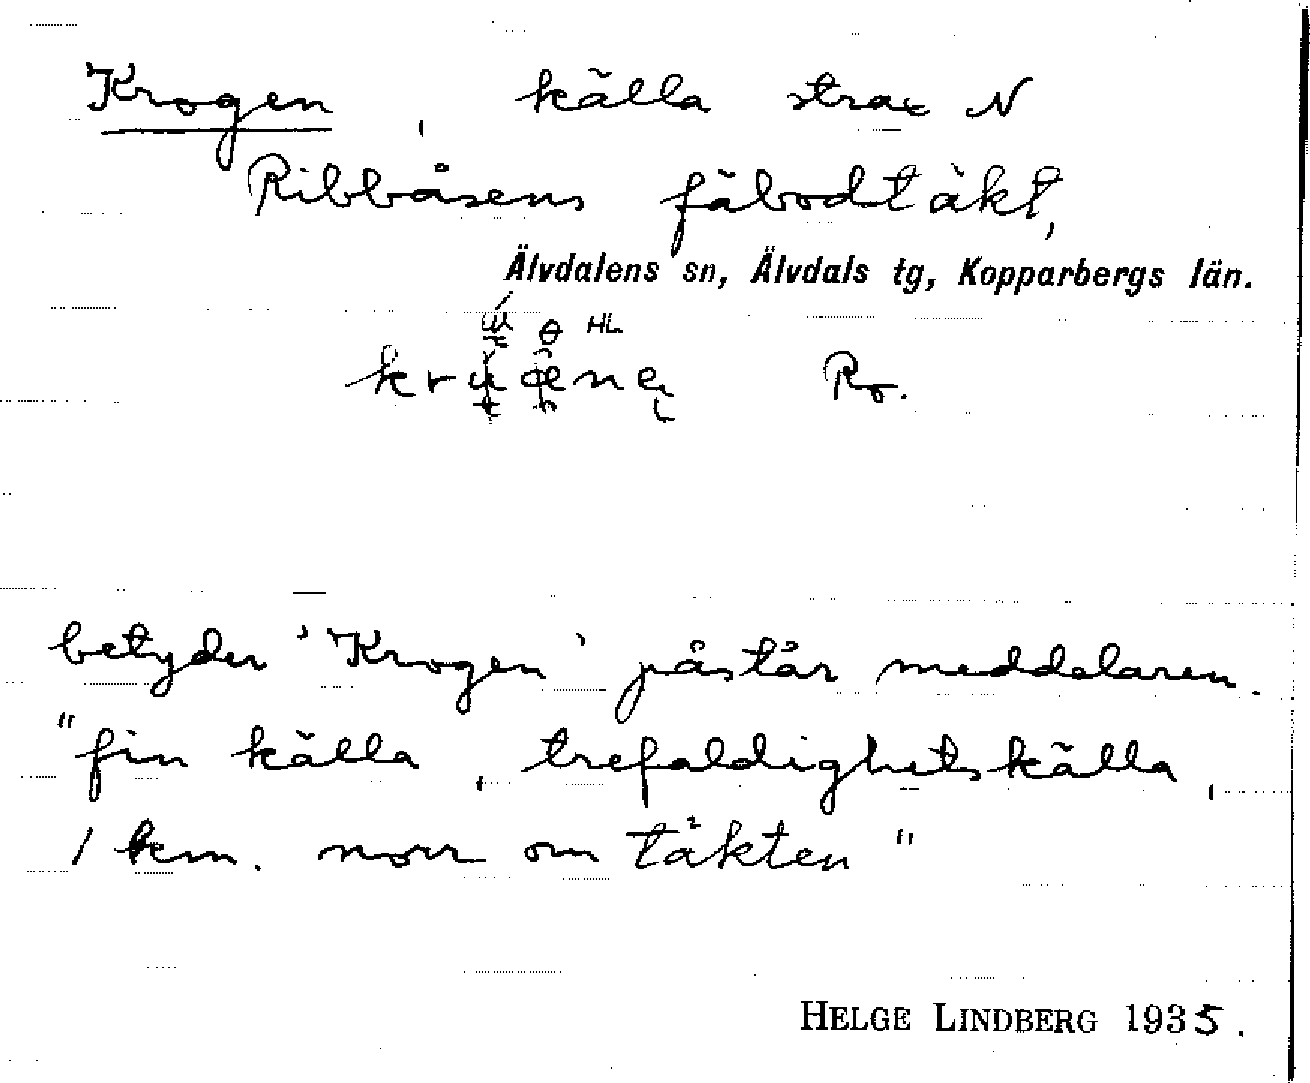 Krogen, källa strax N
Ribbåsens fäbodtäkt,
Älvdalens sn, Älvdals tg, Kopparbergs län.
HL
Ro.
betyder 'Krogen' påstår meddelaren.
"fin källa, trefaldighetskälla,
1 km. norr om täkten"
HELGE LINDBERG 1935.